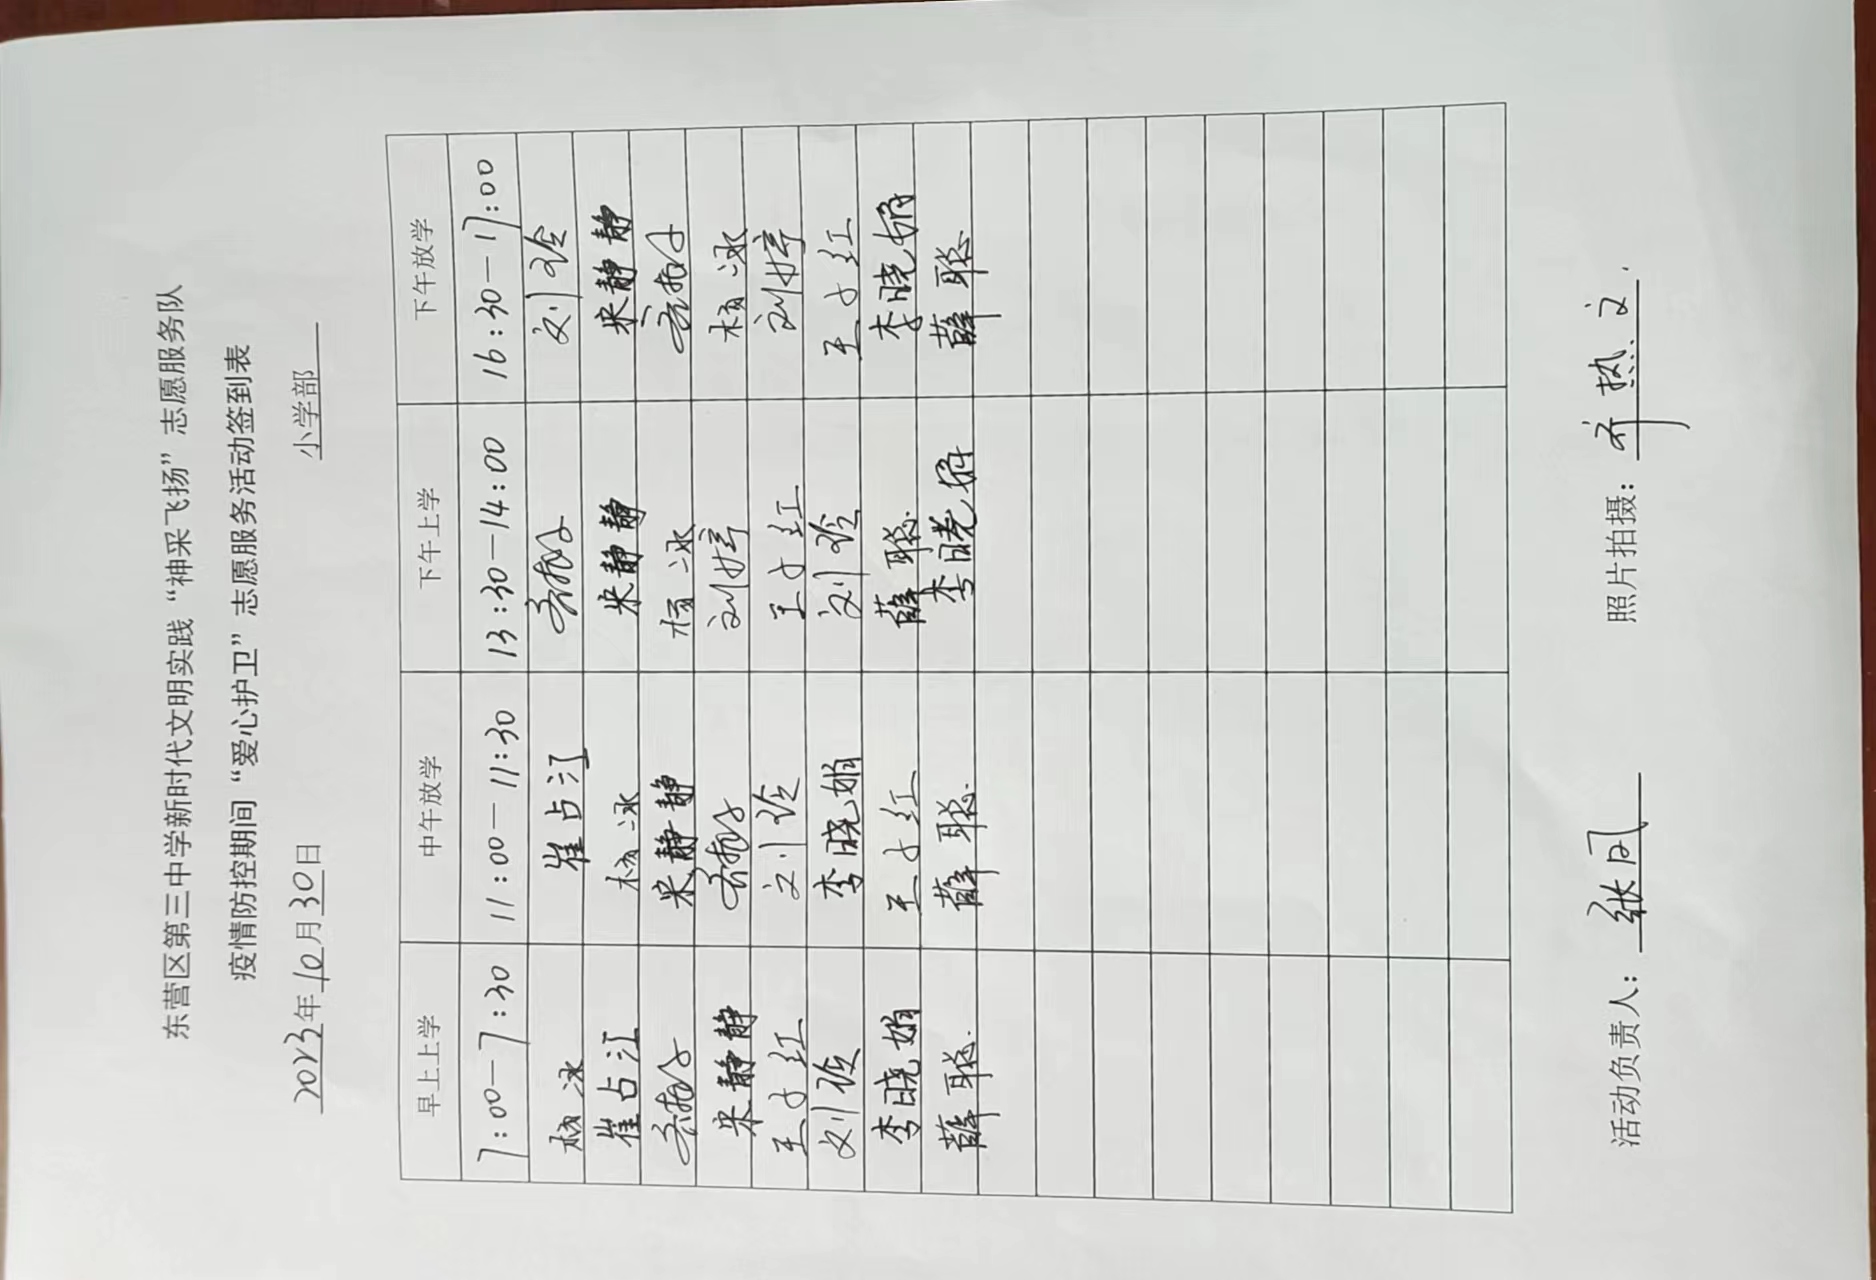 东营区第三中学新时代文明实践“神采飞扬”志愿服务队
疫情防控期间“爱心护卫”志愿服务活动签到表
2023年10月30日 小学部
早上上学 中午放学 下午上学 下午放学
7:00-7:30 11:00-11:30 13:30-14:00 16:30-17:00
杨冰 崔占江 刘玲
崔占江 杨冰 宋静静 宋静静
宋静静 杨冰
宋静静 刘婷 杨冰
王子红 刘玲 王子红 刘婷
刘玲 李晓娟 刘玲 王子红
李晓娟 王子红 薛聪 李晓娟
薛聪 薛聪 李晓娟 薛聪
活动负责人： 照片拍摄：